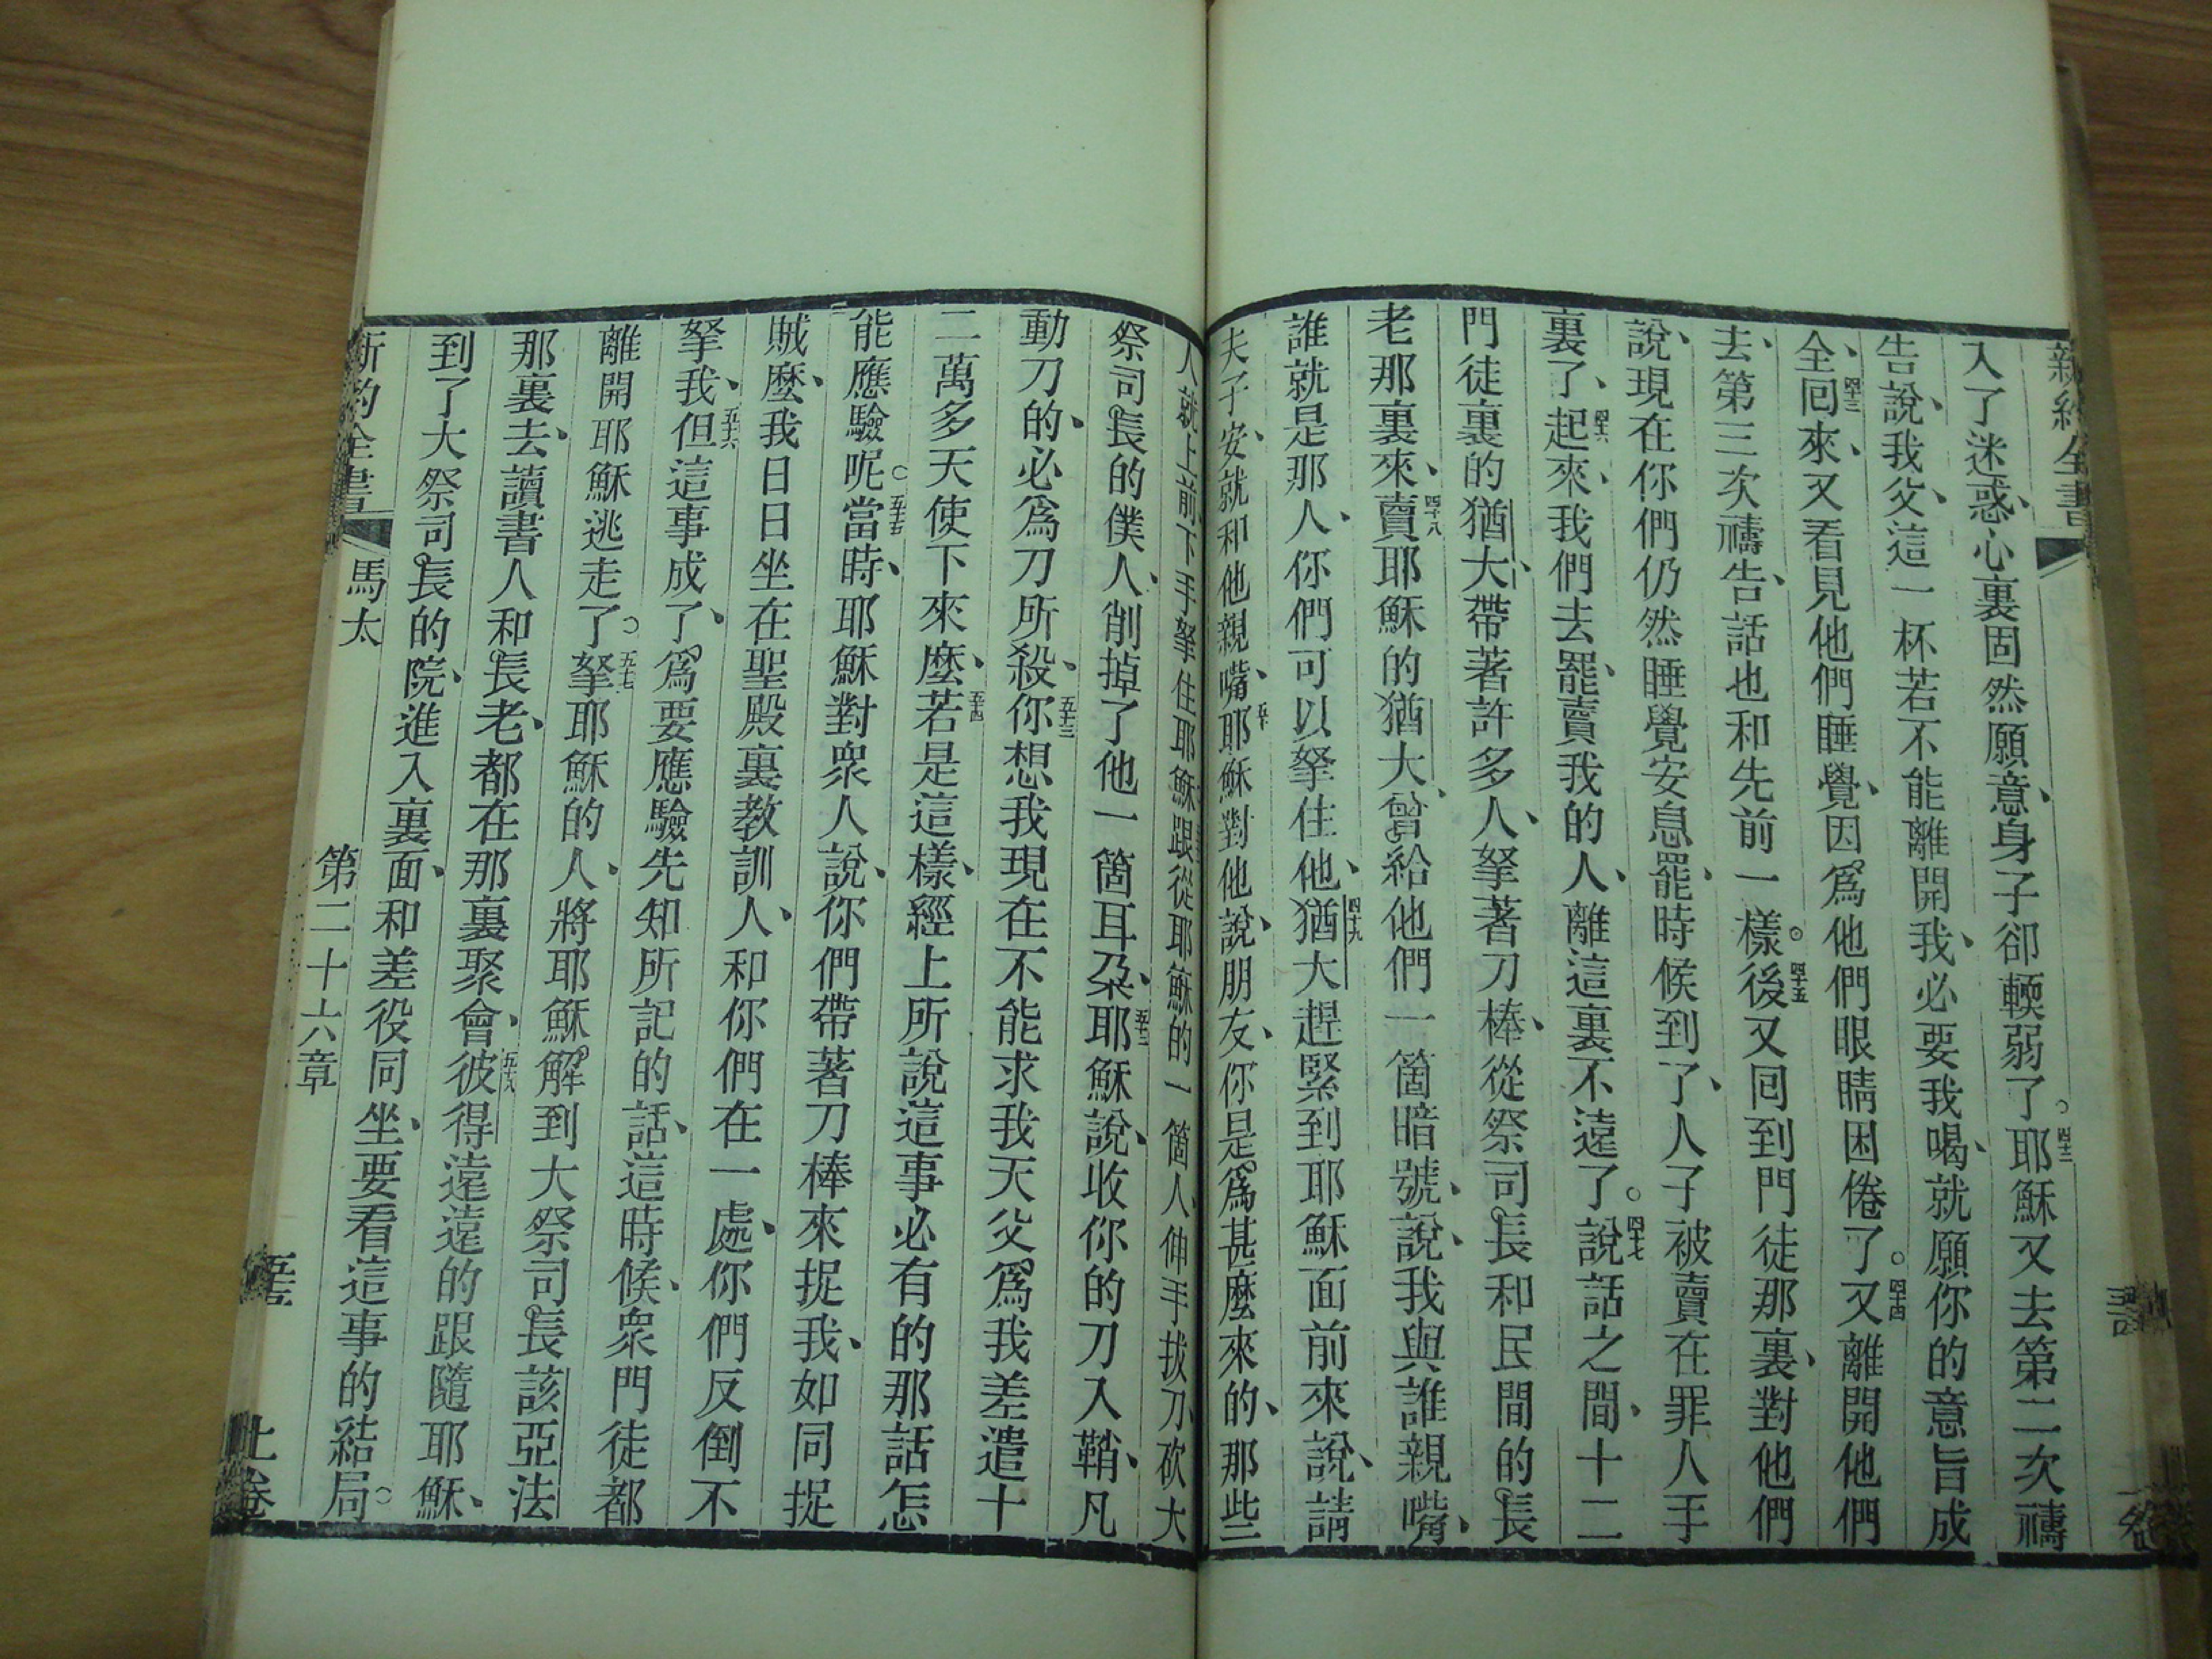 新約全書
入了迷惑、心裏固然願意、身子卻輭弱了。四十二耶穌又去第二次禱
告說、我父、這一杯若不能離開我、必要我喝、就願你的意旨成
全、四十三回來、又看見他們睡覺、因爲他們眼睛困倦了。四十四又離開他們
去、第三次禱告、話也和先前一樣。四十五後又回到門徒那裏、對他們
說、現在你們仍然睡覺安息罷、時候到了、人子被賣在罪人手
裏了、四十六起來、我們去罷、賣我的人、離這裏不遠了。四十七說話之間、十二
門徒裏的猶大、帶著許多人、拏著刀棒、從祭司長和民間的長
老那裏來、四十八賣耶穌的猶大、曾給他們一箇暗號、說、我與誰親嘴、
誰就是那人、你們可以拏住他、四十九猶大趕緊到耶穌面前來說、請
夫子安、就和他親嘴、五十耶穌對他說、朋友、你是爲甚麼來的、那些
人就上前下手拏住耶穌跟從耶穌的一箇人、伸手拔刀、砍大
祭司長的僕人、削掉了他一箇耳朶、五十二耶穌說、收你的刀入鞘、凡
動刀的、必爲刀所殺、五十三你想我現在不能求我天父爲我差遣十
二萬多天使下來麼、五十四若是這樣、經上所說這事必有的那話怎
能應驗呢。五十五當時、耶穌對衆人說、你們帶著刀棒來捉我、如同捉
賊麼、我日日坐在聖殿裏教訓人、和你們在一處、你們反倒不
拏我、五十六但這事成了、爲要應驗先知所記的話、這時候、衆門徒都
離開耶穌逃走了。五十七拏耶穌的人、將耶穌解到大祭司長該亞法
那裏去、讀書人和長老、都在那裏聚會、五十八彼得遠遠的跟隨耶穌、
到了大祭司長的院、進入裏面、和差役同坐、要看這事的結局。
新約全書 馬太 第二十六章 上卷